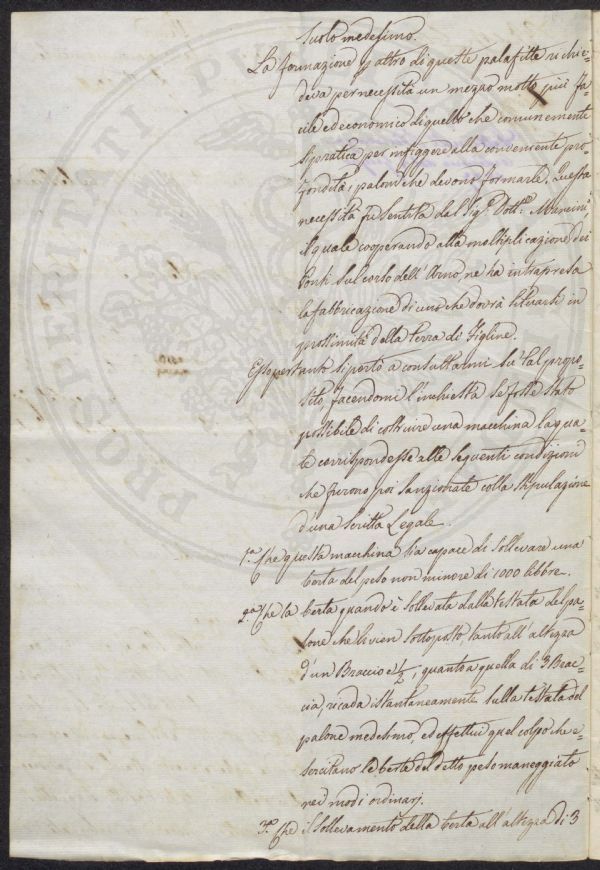 suolo medesimo.
La formazione p altro di queste palafitte richie-
deva per necessità un mezzo molto più fa
cile ed economico di quello che comunemente
si pratica per infiggere alla conveniente pro
fondità, i paloni che devono formarle. Questa
necessità fu sentita dal Sigr. Dottre. Mancini
il quale cooperando alla moltiplicazione dei
Ponti sul corso dell'Arno, ne ha intrapresa
la fabbricazione di uno che dovrà situarsi in
prossimità della Terra di Figline.
Esso pertanto si portò a consultarmi su tal propo-
sito, facendomi l'inchiesta se fosse stato
possibile di costruire una macchina la qua-
le corrispondesse alle seguenti condizioni
che furono poi sanzionate colla stipulazione
d'una scritta Legale.
1.a Che questa macchina sia capace di sollevare una
berta del peso non minore di 1000 libbre.
2.a Che la berta quando è sollevata dalla testata del pa-
lone che li vien sottoposto tanto all'altezza
d'un Braccio e ½, quanto a quella di 3 Brac-
cia, ricada istantaneamente sulla testata del
palone medesimo, ed effettui quel colpo che e-
sercitano le berte del detto peso maneggiate
nei modi ordinarj.
3.a Che il sollevamento della berta all'altezza di 3
PROSPERITATI PUBLICAE